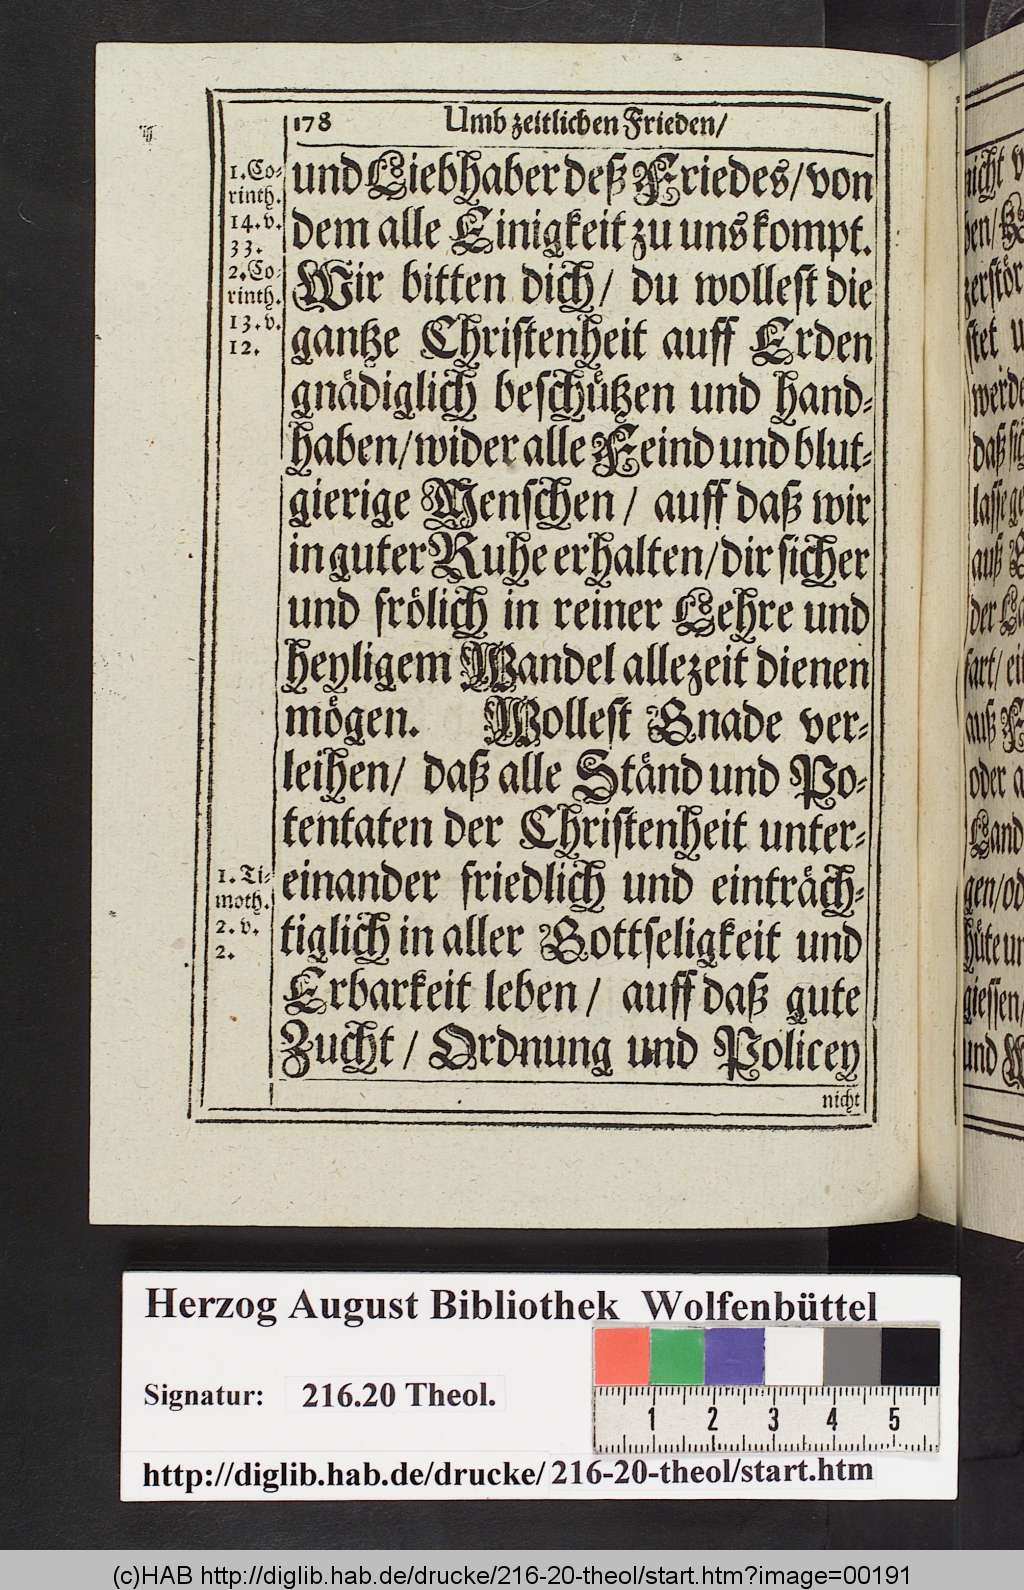 178 Umb zeitlichen Frieden/
1. Co-
rinth.
14. v.
33.
2. Co-
rinth.
13. v.
12.
und Liebhaber deß Friedes/ von
dem alle Einigkeit zu uns kompt.
Wir bitten dich/ du wollest die
gantze Christenheit auff Erden
gnädiglich beschützen und hand-
haben/ wider alle Feind und blut-
gierige Menschen/ auff daß wir
in guter Ruhe erhalten/ dir sicher
und frölich in reiner Lehre und
heyligem Wandel allezeit dienen
mögen. Wollest Gnade ver-
leihen/ daß alle Ständ und Po-
tentaten der Christenheit unter-
einander friedlich und einträch-
tiglich in aller Gottseligkeit und
Erbarkeit leben/ auff daß gute
Zucht/ Ordnung und Policey
1. Ti-
moth.
2. v.
2.
nicht
nicht
zerstör
werde
daß
lasse
auß
der
fart/
auß
oder
Land
gen/
hüte
giessen/
und
Herzog August Bibliothek Wolfenbüttel
Signatur: 216.20 Theol.
1 2 3 4 5
http://diglib.hab.de/drucke/216-20-theol/start.htm
(c)HAB http://diglib.hab.de/drucke/216-20-theol/start.htm?image=00191